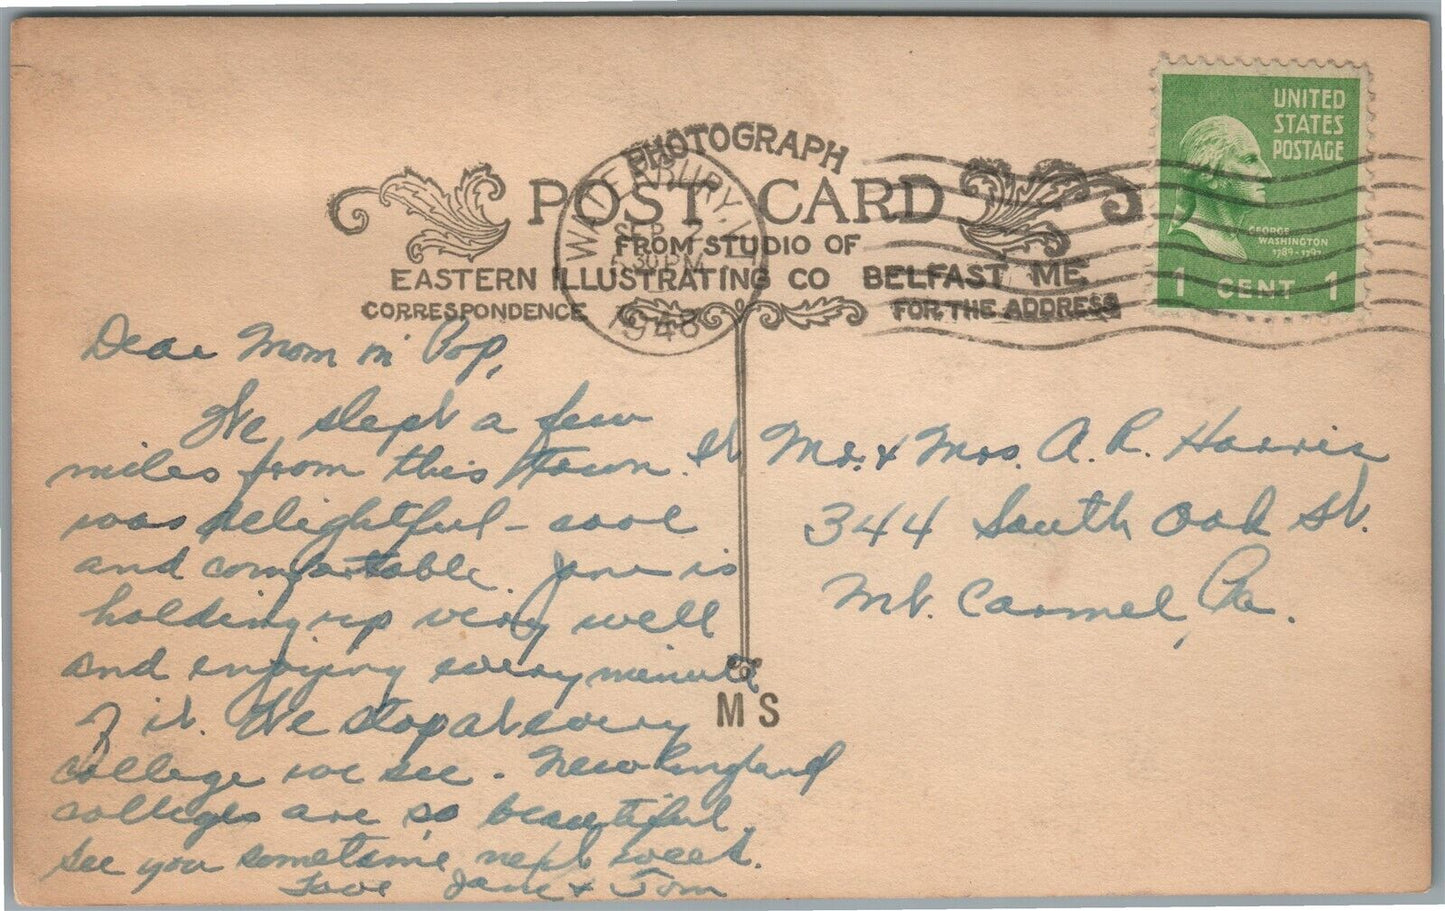 PHOTOGRAPH
POST CARD
FROM STUDIO OF
EASTERN ILLUSTRATING CO BELFAST ME.
CORRESPONDENCE
FOR THE ADDRESS
WATERBURY, VT
SEP 7
5 30 PM
1948
UNITED
STATES
POSTAGE
GEORGE
WASHINGTON
1789-1797
1 CENT 1
Dear Mom 'n' Pop,
We slept a few
miles from this town. It
was delightful - cool
and comfortable. Jane is
holding up very well
and enjoying every minute
of it. We stop at every
college we see. New England
colleges are so beautiful.
See you sometime next week.
Love Jane & Tom
Mr. & Mrs. A. R. Harris
344 South Oak St.
Mt. Carmel, Pa.
MS